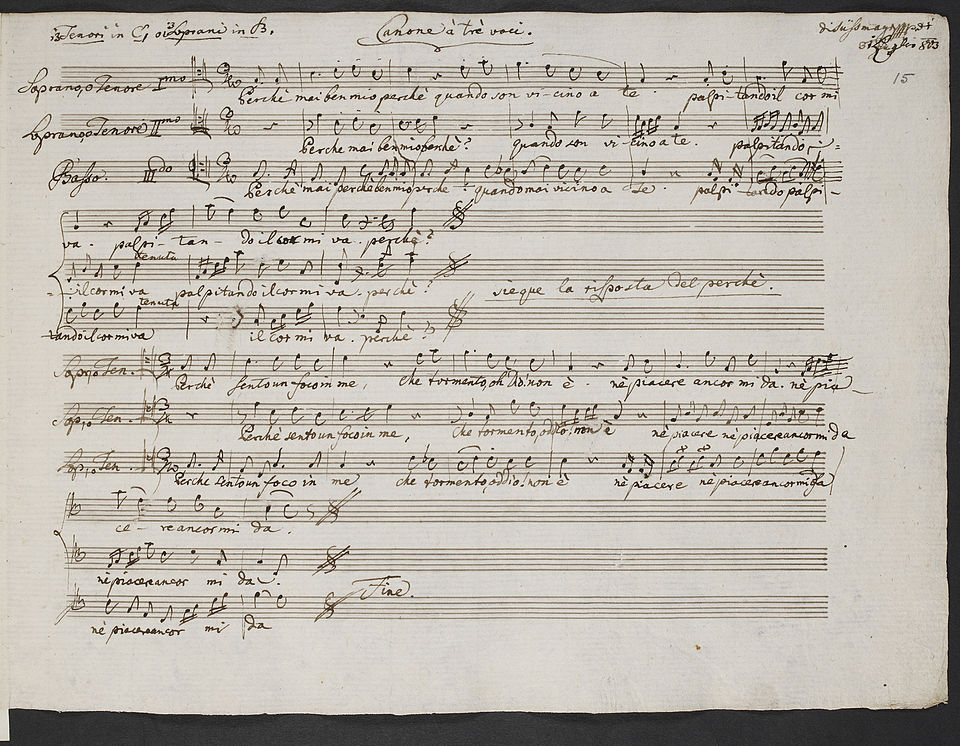 3 Tenori in C, o 3 Soprani in B.
Canone à trè voci.
di Süssmayr
31 Luglio 803
15
Soprano, o Tenore I.mo
Perchè mai ben mio perchè quando son vi-cino a te. palpi-tando il cor mi
Soprano, o Tenore II.mo
Perche mai ben mio perchè? quando son vi-cino a te. palpitando
Basso. III.do
Perchè mai perchè ben mio perche quando mai vicino a te. palpi-tando palpi-
va. palpi-tan-do il cor mi va. perchè?
tenuta
il cor mi va palpitando il cor mi va. perchè?
sieque la risposta del perchè.
tenuta
tando il cor mi va il cor mi va. perchè?
Sopr, o Ten.
Perchè sento un foco in me, che tormento, oh Dio! non è. nè piacere ancor mi da. nè pia-
Sop, o Ten.
Perchè sento un foco in me, Che tormento, oddio! non è nè piacere nè piacere ancor mi da
Sop, o Ten.
Perche sento un foco in me che tormento, oddio! non è nè piacere nè piacere ancor mi da
ce-re ancor mi da.
nè piacere ancor mi da.
Fine.
nè piacere ancor mi da